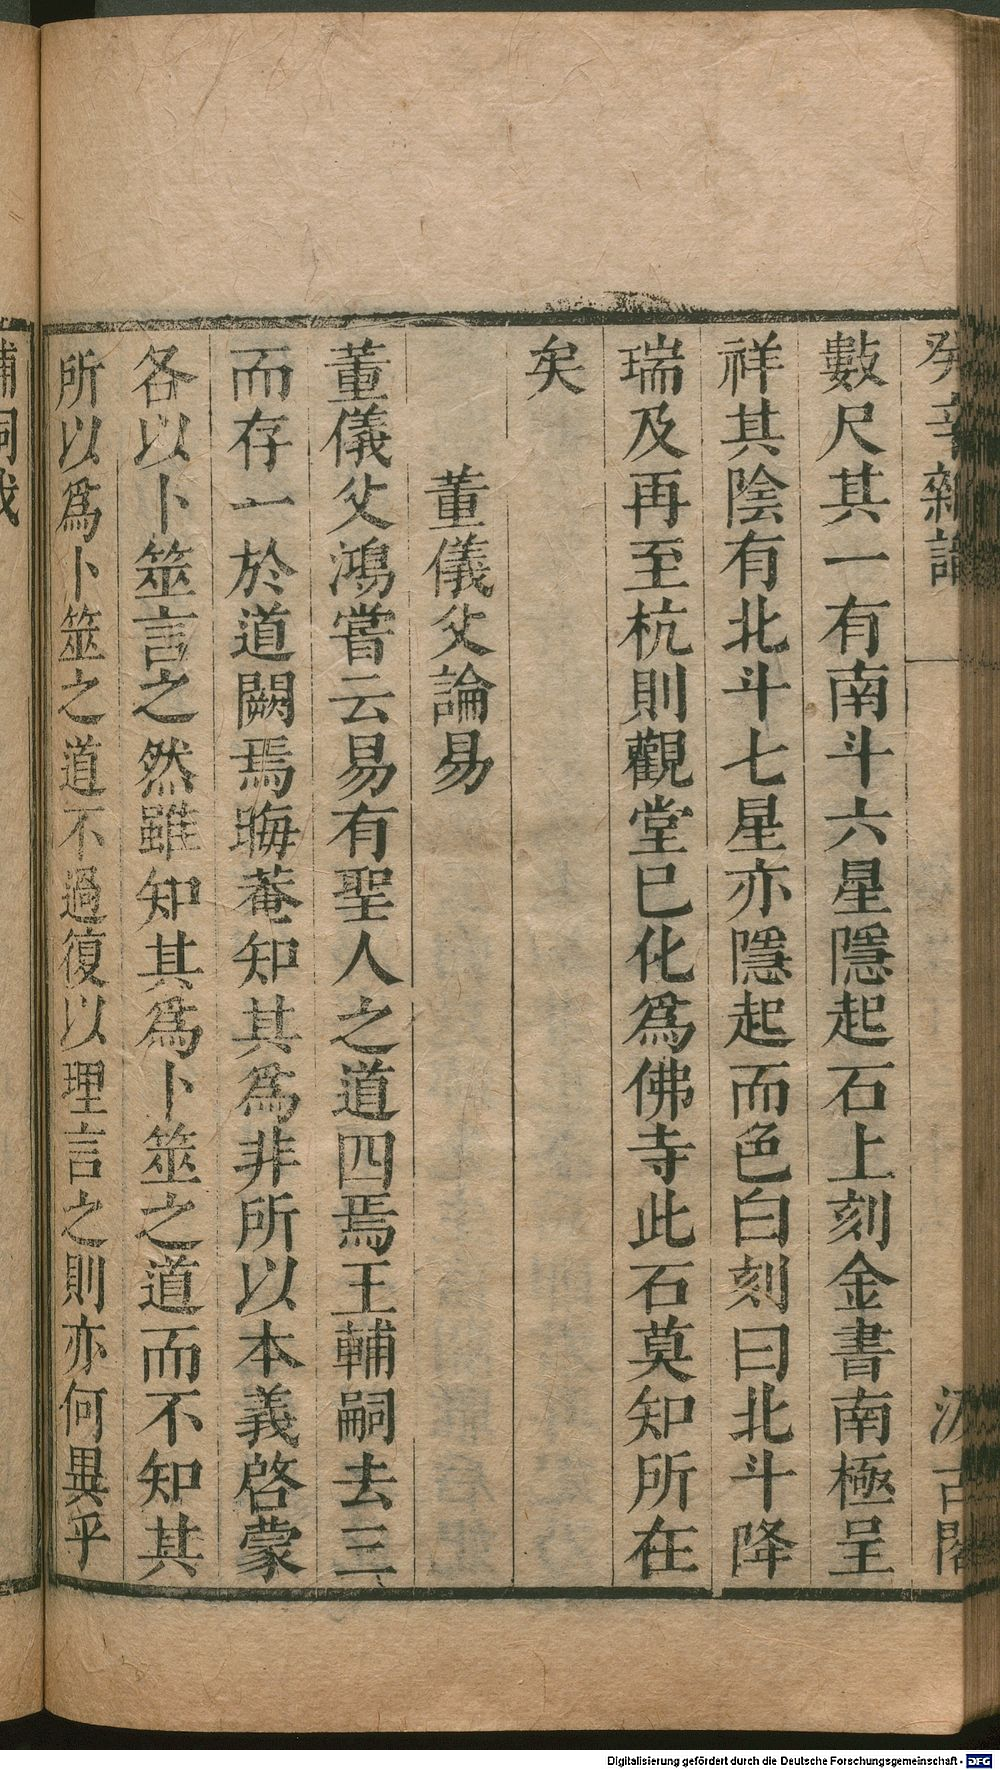 癸辛雜識
汲古閣
數尺其一有南斗六星隱起石上刻金書南極呈
祥其陰有北斗七星亦隱起而色白刻曰北斗降
瑞及再至杭則觀堂已化為佛寺此石莫知所在
矣
董儀父論易
董儀父鴻嘗云易有聖人之道四焉王輔嗣去三
而存一於道闕焉晦菴知其為非所以本義啓蒙
各以卜筮言之然雖知其為卜筮之道而不知其
所以為卜筮之道不過復以理言之則亦何異乎
輔嗣哉
Digitalisierung gefördert durch die Deutsche Forschungsgemeinschaft - DFG